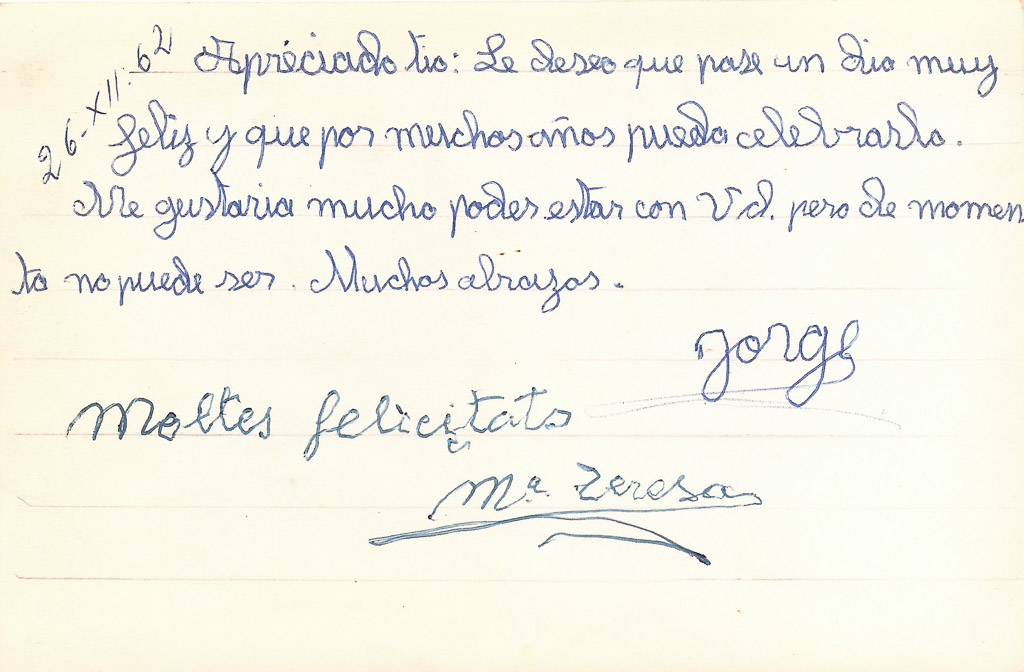 26-XII-62
Apréciado tio: Le deseo que pase un dia muy
feliz y que por muchos años pueda celebrarlo.
Me gustaria mucho poder estar con Vd. pero de momen
to no puede ser. Muchos abrazos.
Jorge
Moltes felicitats
Mª Teresa